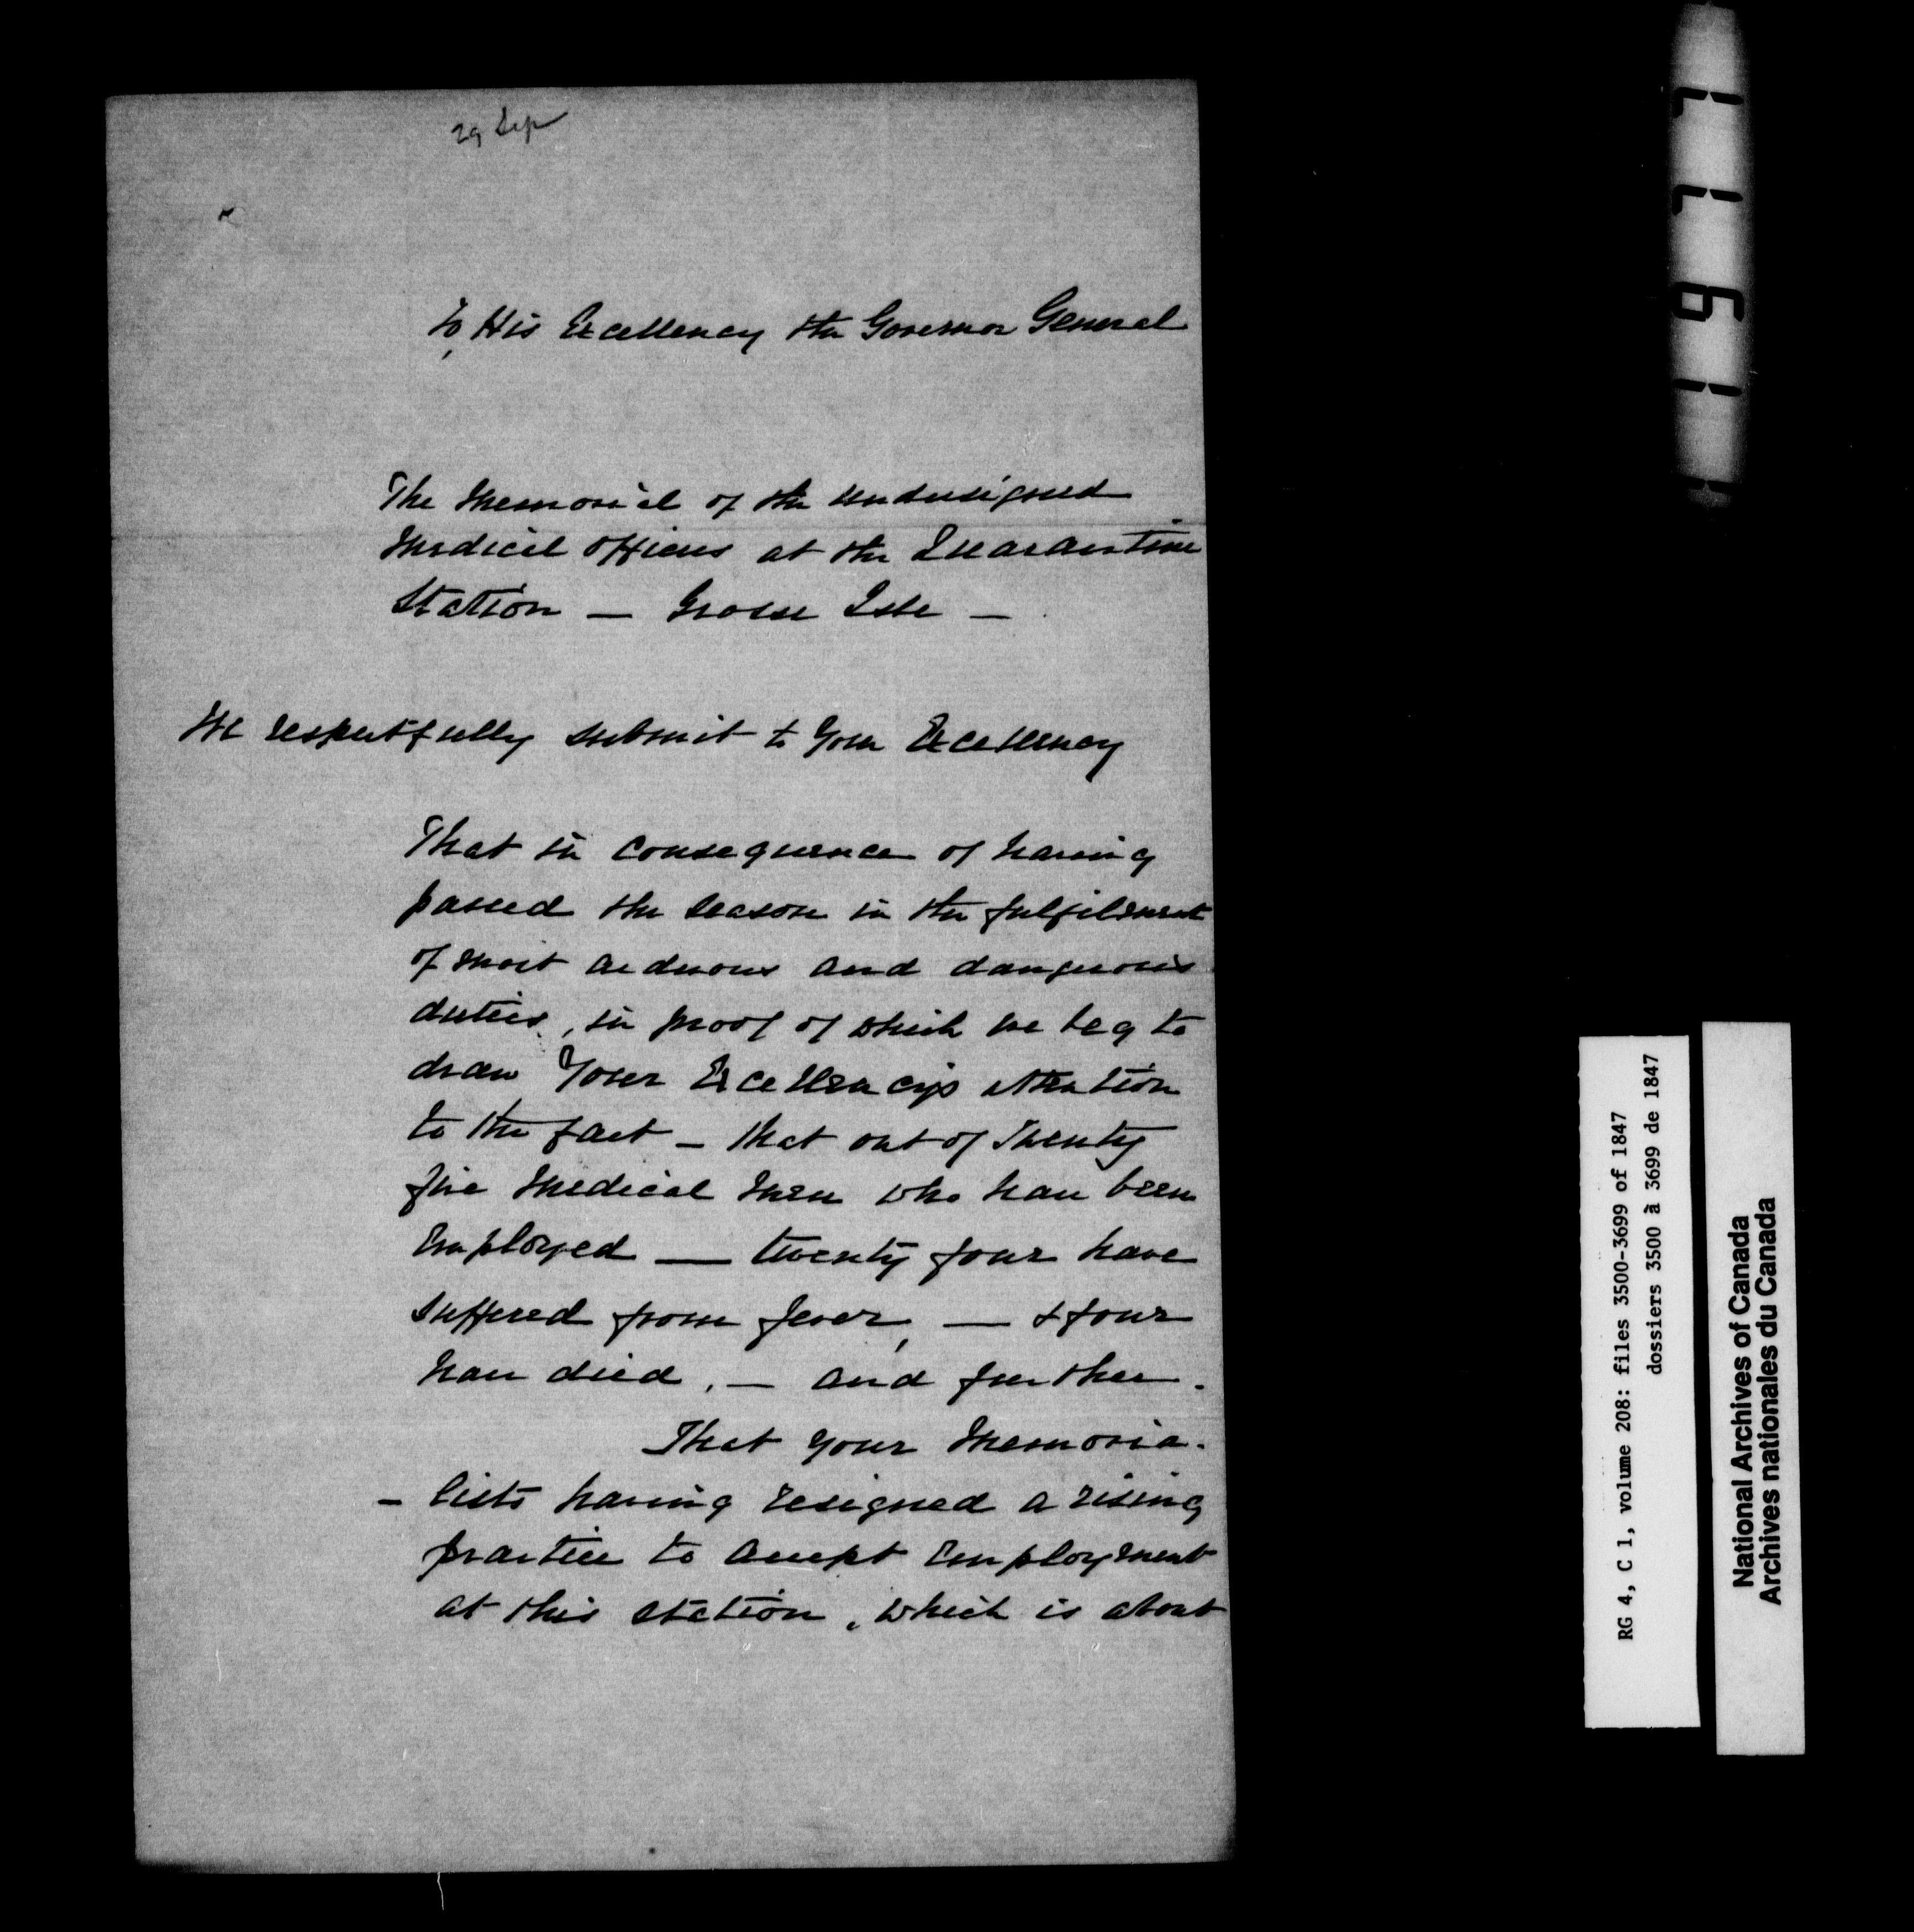 29 Sep
To His Excellency the Governor General
The Memorial of the undersigned
Medical officers at the Quarantine
Station — Grosse Isle —
We respectfully submit to Your Excellency
That in consequence of having
passed the season in the fulfilment
of most arduous and dangerous
duties, in proof of which we beg to
draw Your Excellencys attention
to the fact — that out of Twenty
five Medical Men who have been
Employed — twenty four have
suffered from fever, — & four
have died, — and further.
That your Memoria-
- lists having resigned a rising
practice to accept Employment
at this station, which is about
RG 4, C 1, volume 208: files 3500-3699 of 1847
dossiers 3500 à 3699 de 1847
National Archives of Canada
Archives nationales du Canada